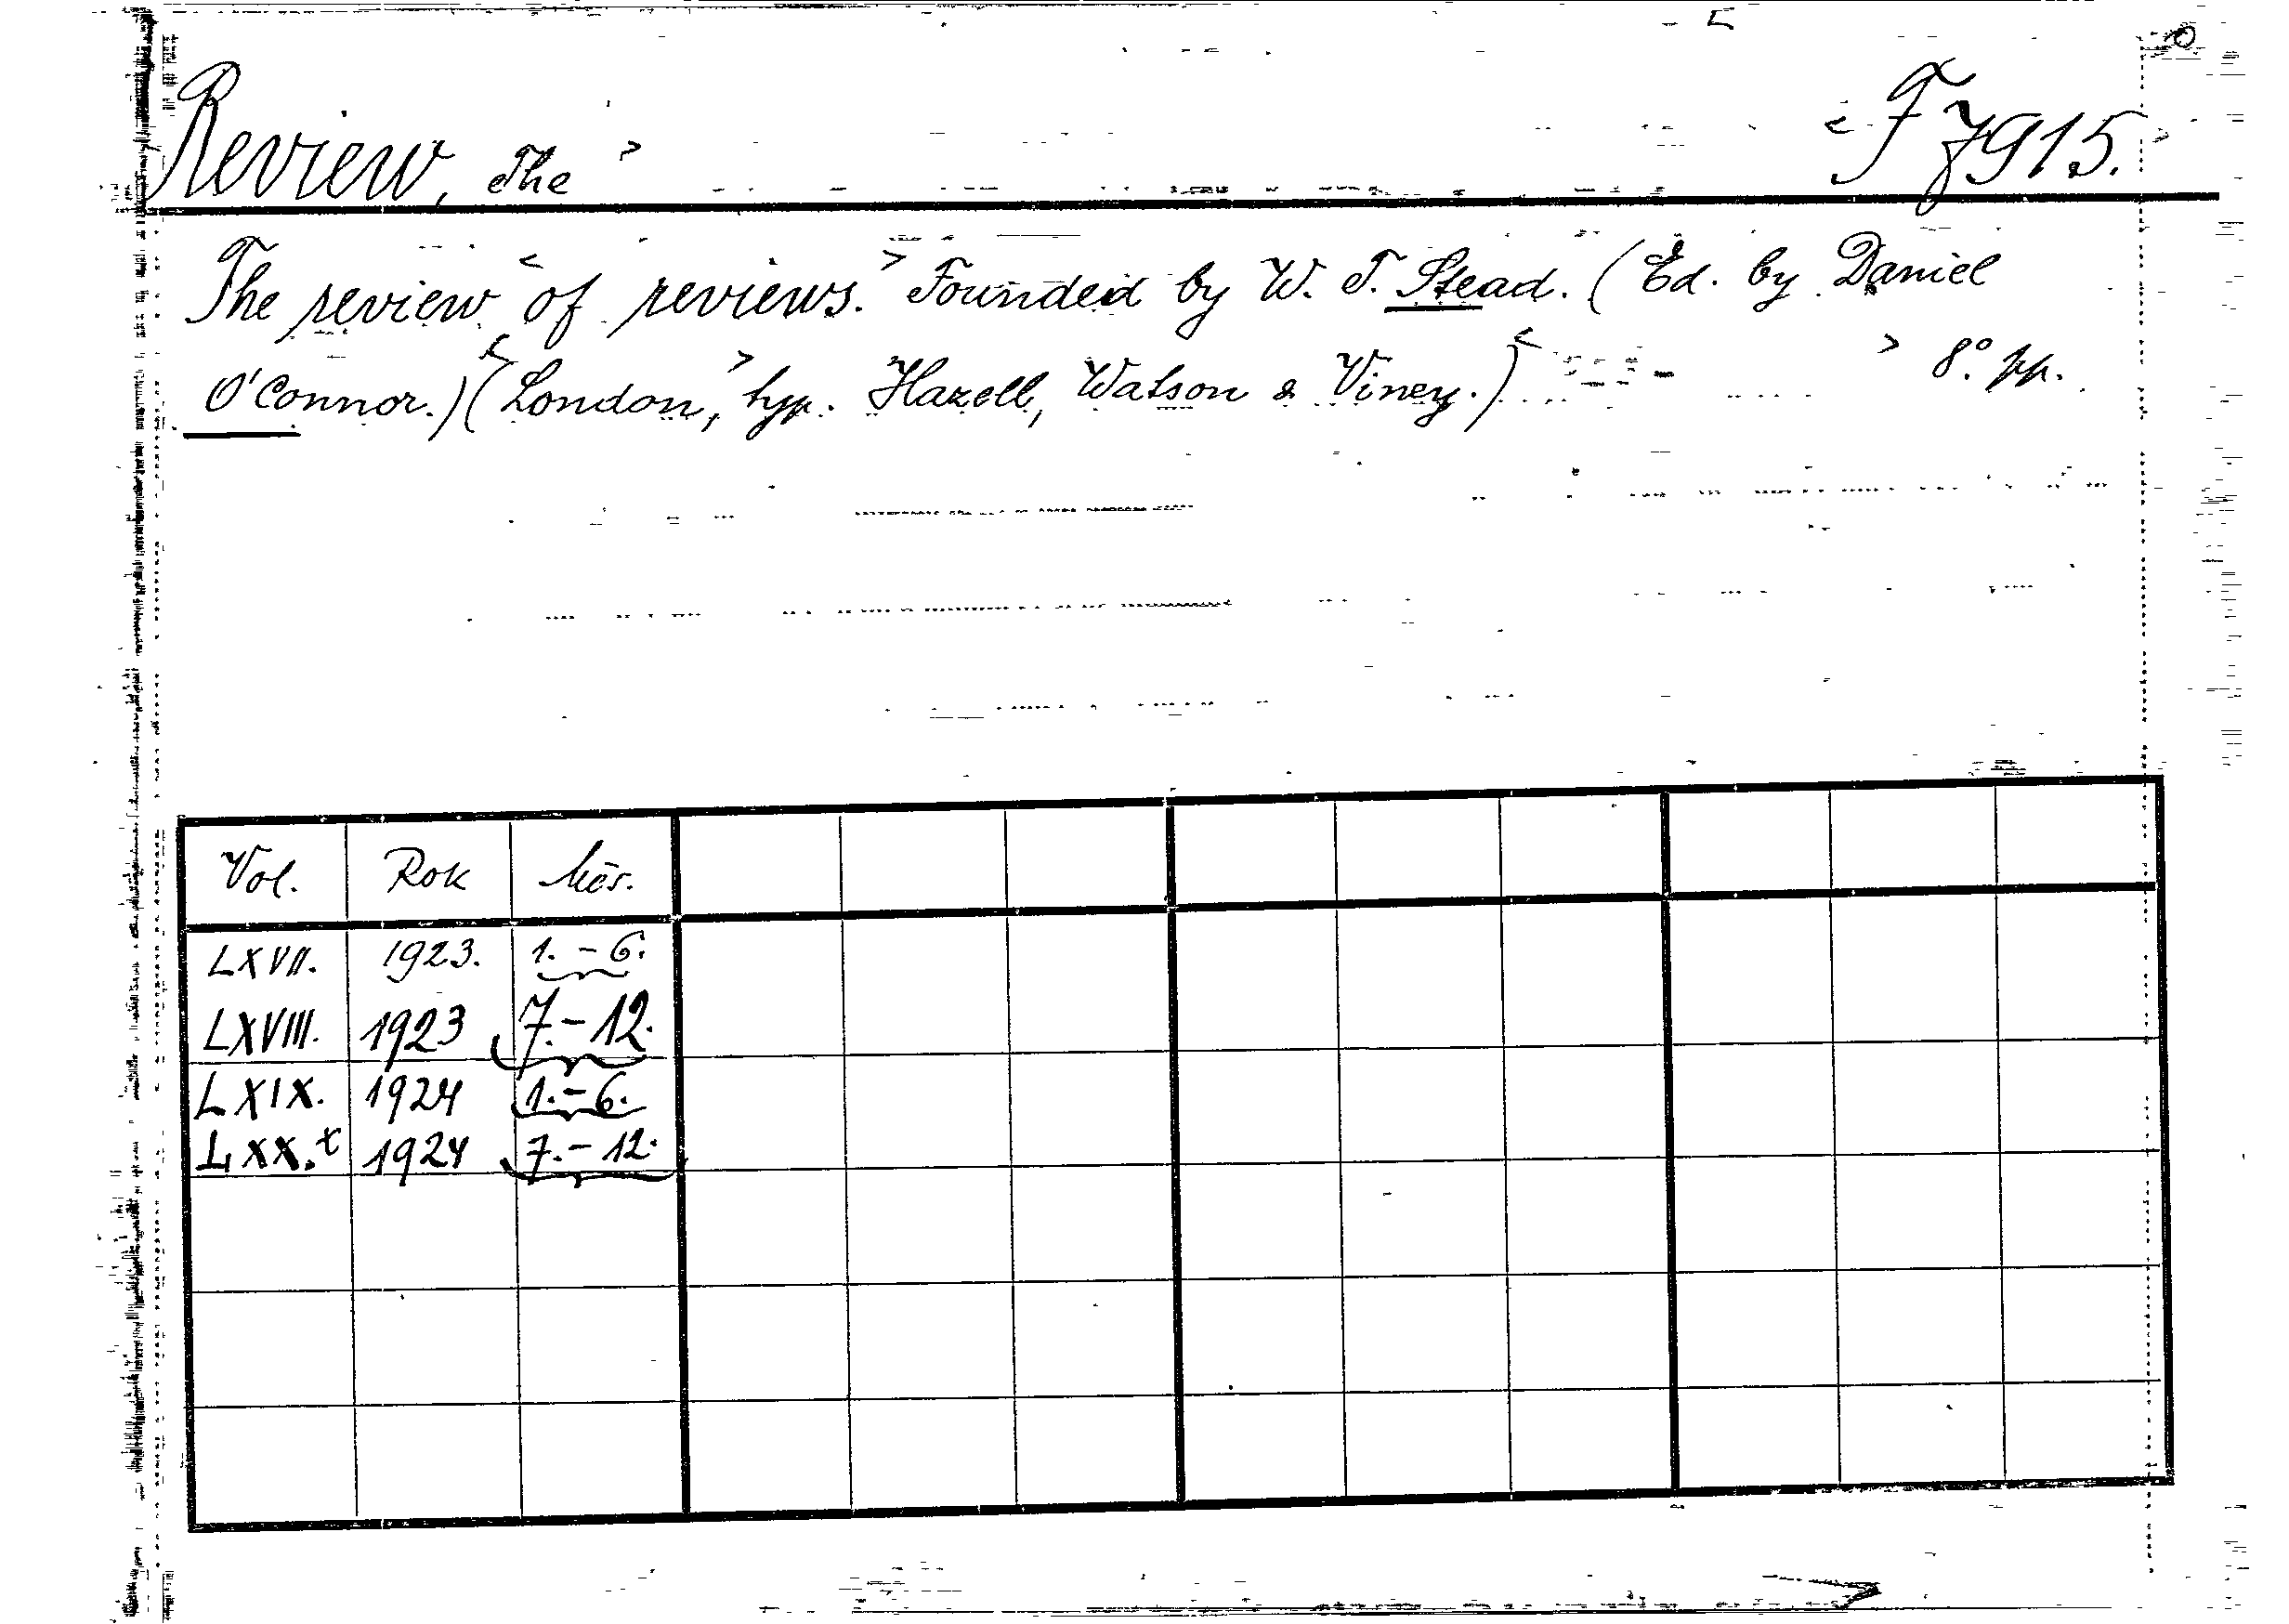 Review, The F 7915.
The review of reviews. Founded by W. T. Stead. (Ed. by Daniel
O'Connor.) (London, typ. Hazell, Watson & Viney.) 8°. pp.
Vol. Rok Měs.
LXVII. 1923. 1. - 6.
LXVIII. 1923 7. - 12.
LXIX. 1924 1. - 6.
LXX.x 1924 7. - 12.